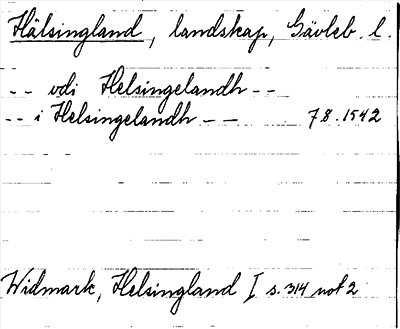 Hälsingland, landskap, Gävleb. l.
-- vdi Helsingelandh --
-- i Helsingelandh -- 7.8.1542
Widmark, Helsingland I s. 314 not 2